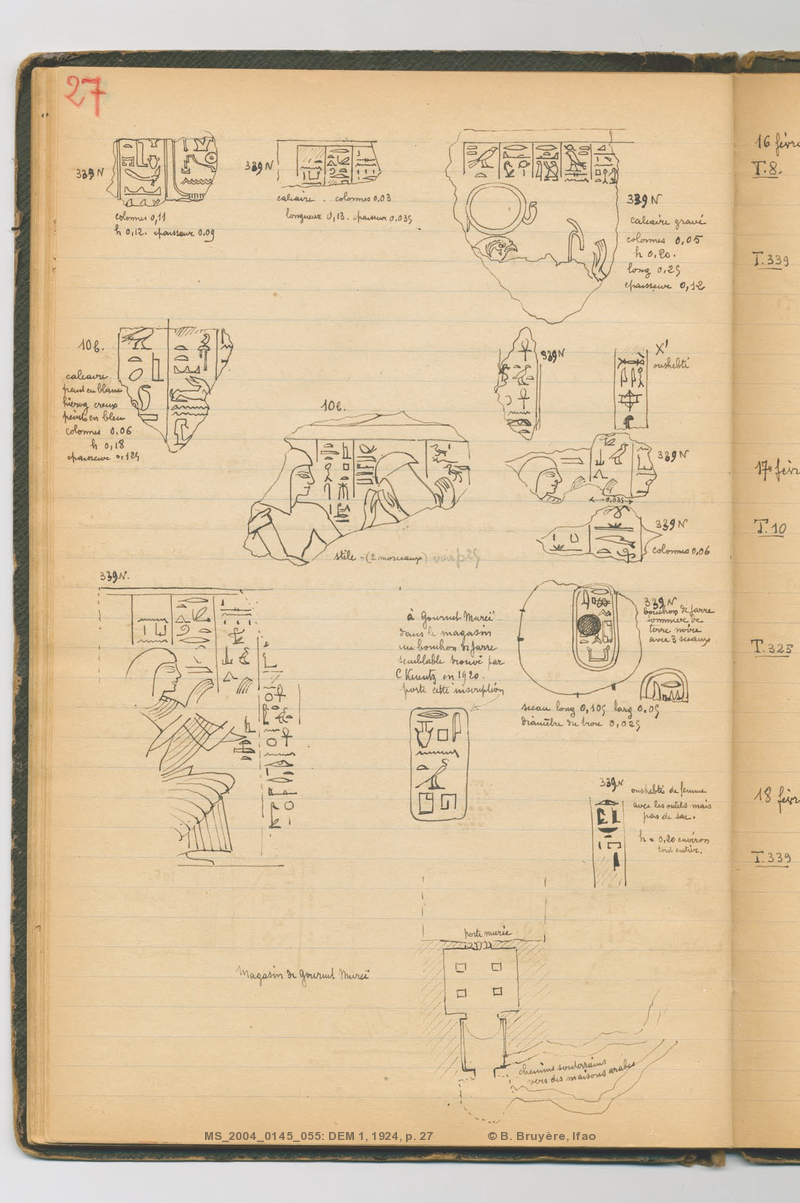 27
339 N
colonnes 0,11
h 0,12. épaisseur 0,09
339 N
calcaire . colonnes 0,03
longueur 0,13. épaisseur 0,035
339 N
calcaire gravé
colonnes 0,05
h 0,20.
long 0,25
épaisseur 0,12
10 b.
calcaire
peint en blanc
hiérog creux
peints en bleu
colonnes 0,06
h 0,18
épaisseur 0,125
10 b.
stèle (2 morceaux) voir p 25
339 N
X'
oushebti
339 N
0,035
339 N
colonnes 0,06
339 N.
à Gournet Mureï
dans le magasin
un bouchon de jarre
semblable trouvé par
C Kuentz en 1920
porte cette inscription
339 N
bouchon de jarre
sommier de
terre noire
avec 3 sceaux
sceau long 0,105 larg 0,05
diamètre du trou 0,025
339 N
oushebti de femme
avec les outils mais
pas de sac.
h = 0,20 environ
tout entier.
porte murée
Magasin de Gournet Mureï
chemins souterrains
vers des maisons arabes
16 févr
T.8.
T.339
17 févr
T.10
T.325
18 févr
T.339
MS_2004_0145_055: DEM 1, 1924, p. 27 © B. Bruyère, Ifao